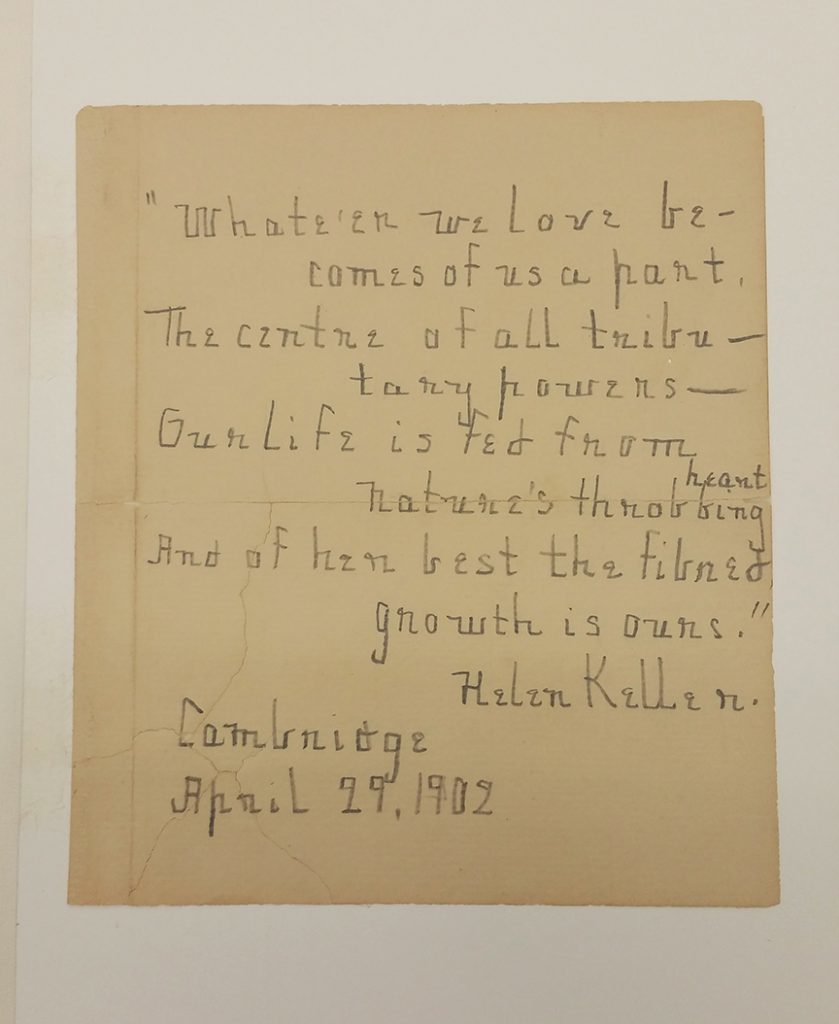 "Whate'er we love be-
comes of us a part,
The centre of all tribu—
tary powers—
Our life is fed from
Nature's throbbing
heart
And of her best the fibred
growth is ours."
Helen Keller.
Cambridge
April 29, 1902